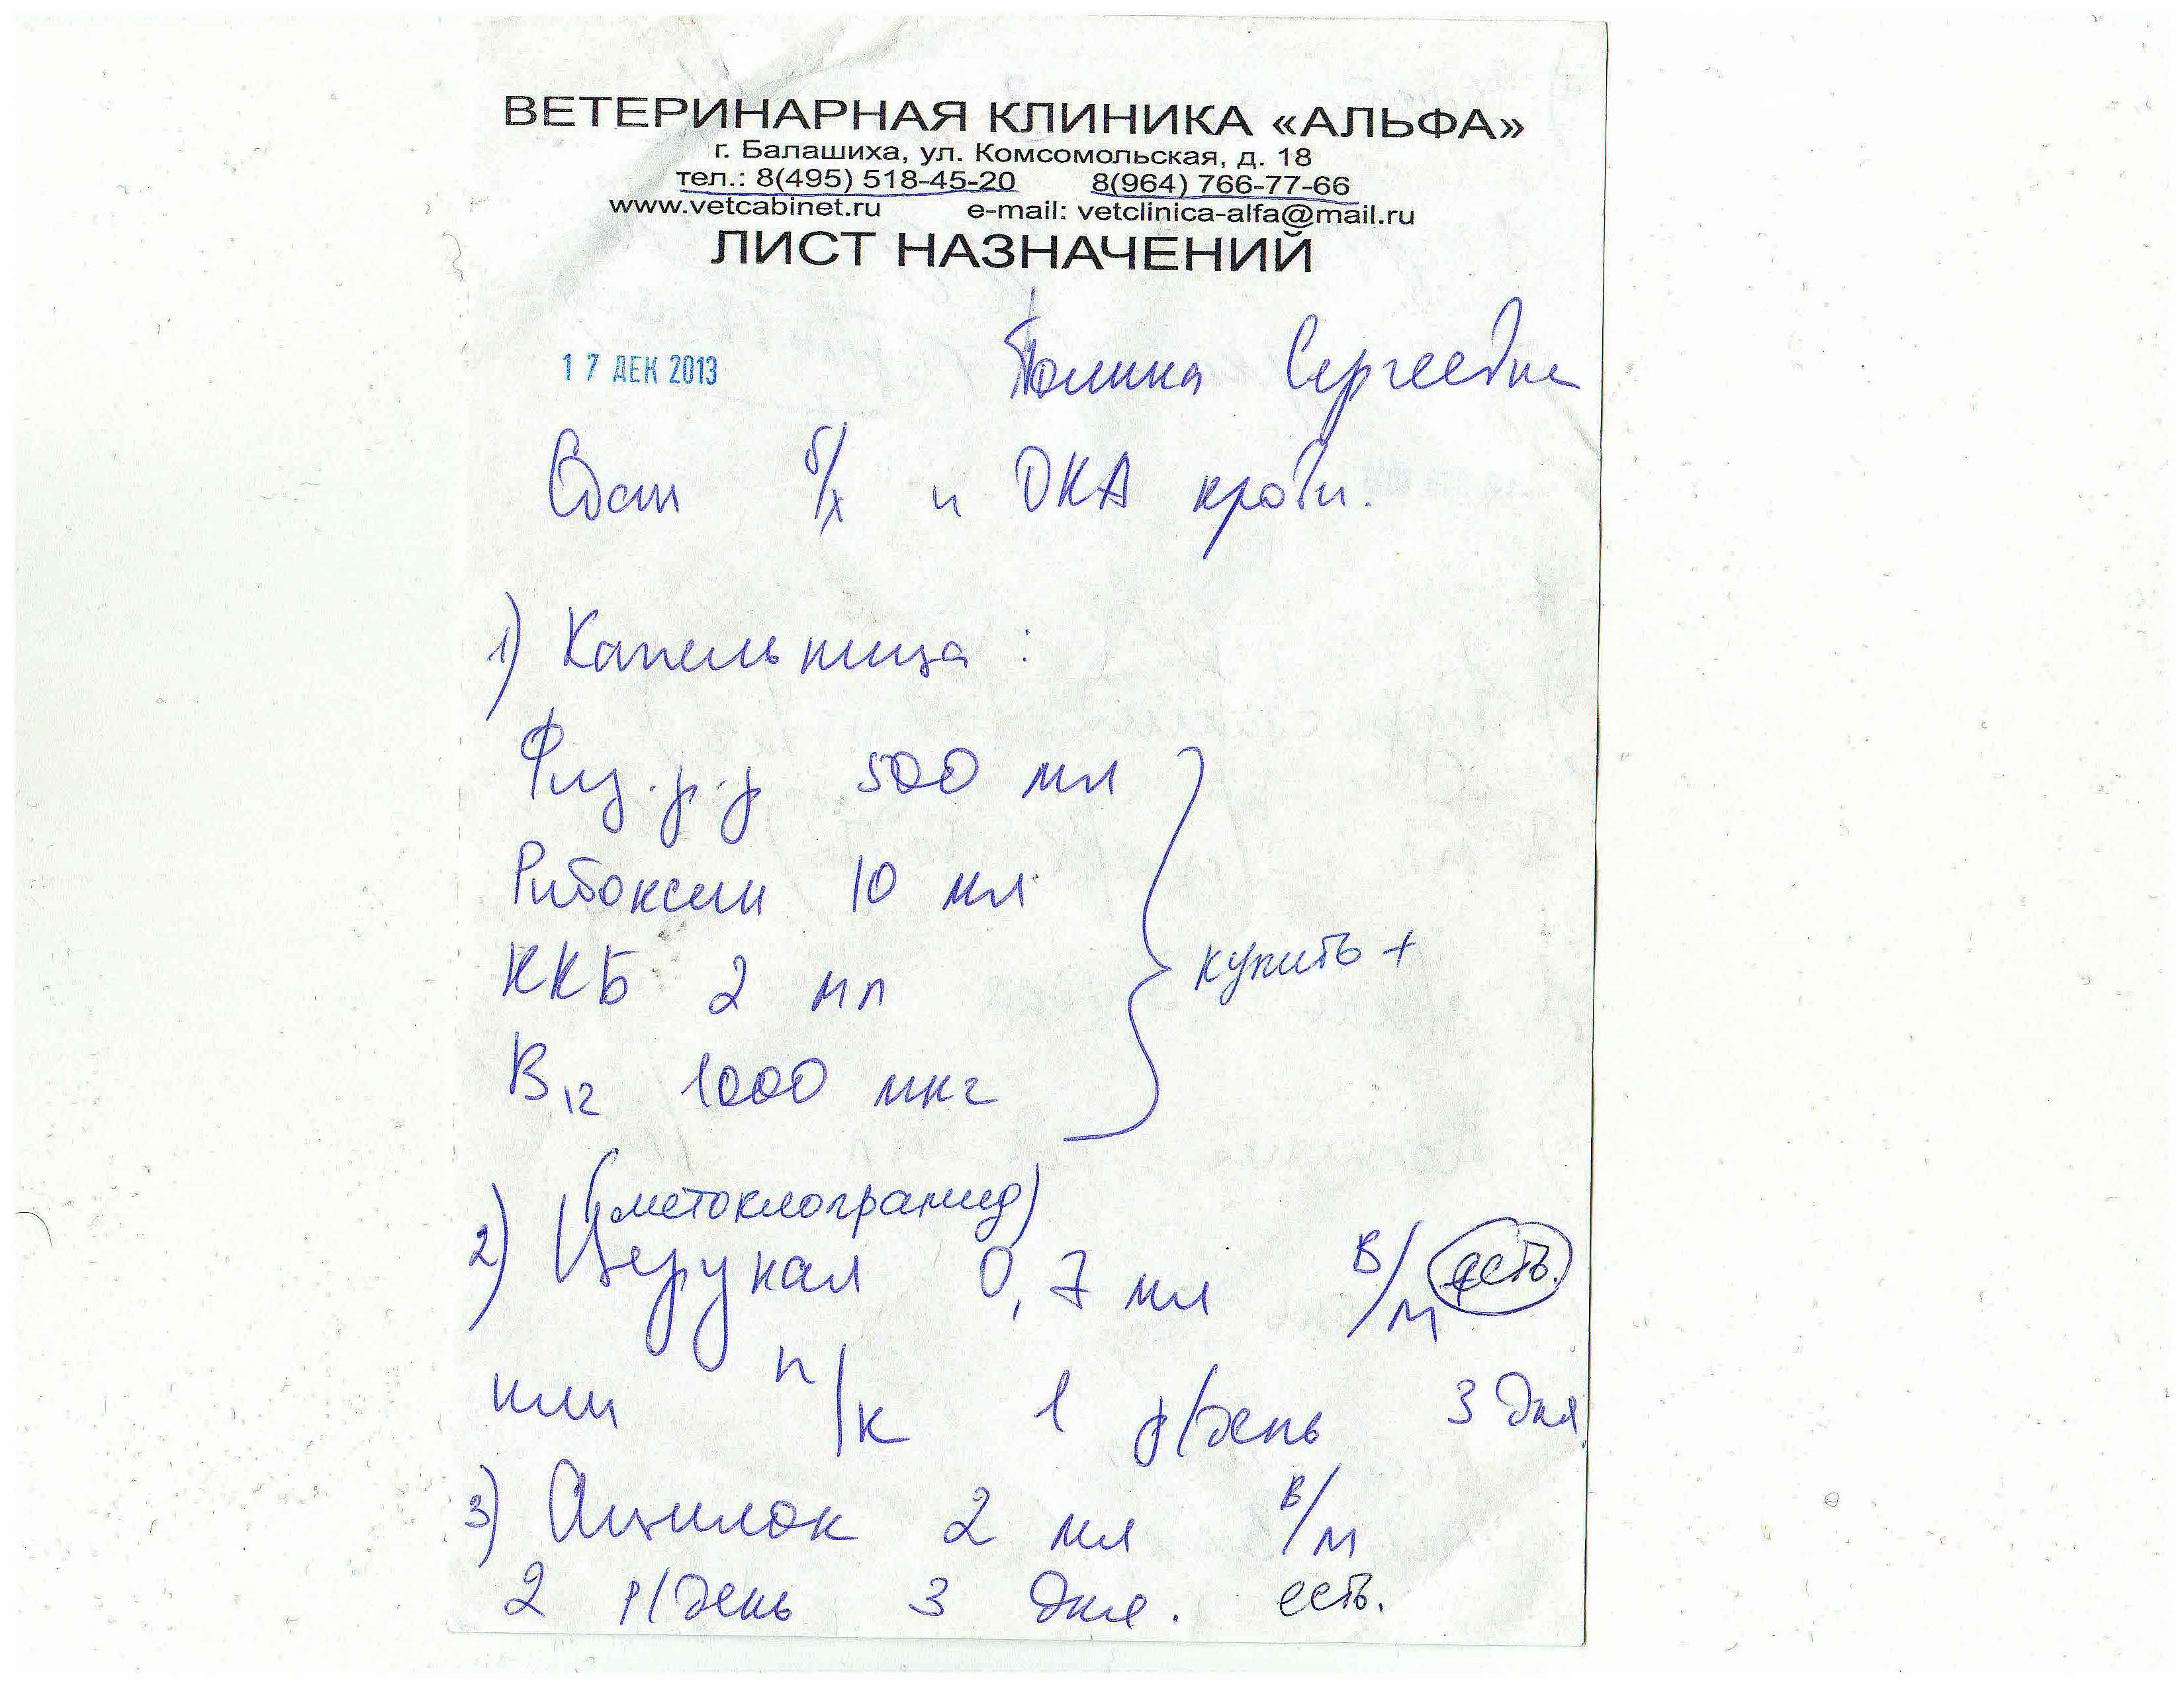 ВЕТЕРИНАРНАЯ КЛИНИКА «АЛЬФА»
г. Балашиха, ул. Комсомольская, д. 18
тел.: 8(495) 518-45-20 8(964) 766-77-66
www.vetcabinet.ru e-mail: vetclinica-alfa@mail.ru
ЛИСТ НАЗНАЧЕНИЙ
17 ДЕК 2013 Полина Сергеевна
Сдан б/х и ОКА крови.
1) Капельница :
Физ.р.р 500 мл
Рибоксин 10 мл
ККБ 2 мл
купить +
B12 1000 мкг
(метоклопрамид)
2) Церукал 0,7 мл в/м есть.
или п/к 1 р/день 3 дня
3) Ацилок 2 мл в/м
2 р/день 3 дня. есть.